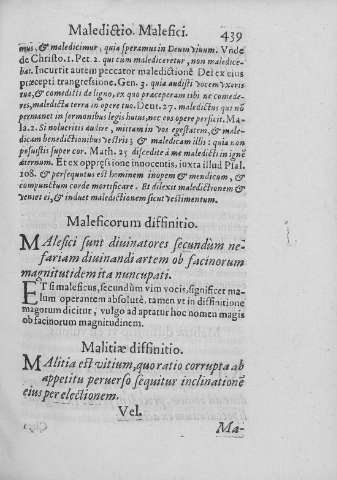 Maledictio. Malefici. 439
mus, & maledicimur, quia speramus in Deum viuum. Vnde
de Christo. 1. Pet. 2. qui cum malediceretur, non maledice-
bat. Incurrit autem peccator maledictionē Dei ex eius
præcepti trangressione. Gen. 3. quia audisti vocem vxoris
tuæ, & comedisti de ligno, ex quo præceperam tibi ne comede-
res, maledicta terra in opere tuo. Deut. 27. maledictus qui nō
permanet in sermonibus legis huius, nec eos opere perficit. Ma-
la. 2. Si nolueritis audire, mittam in vos egestatem, & male-
dicam benedictionibus vestris; & maledicam illis: quia non
posuistis super cor. Math. 25 discedite à me maledicti in ignē
æternum. Et ex oppressione innocentis, iuxta illud Psal.
108. & persequutus est hominem inopem & mendicum, &
compunctum corde mortificare. Et dilexit maledictionem &
veniet ei, & induet maledictionem sicut vestimentum.
Maleficorum diffinitio.
MAlefici sunt diuinatores secundùm ne-
fariam diuinandi artem ob facinorum
magnitutidem ita nuncupati.
ET si maleficus, secundùm vim vocis, significet ma-
lum operantem absolutè, tamen vt in diffinitione
magorum dicitur, vulgo adaptatur hoc nomen magis
ob facinorum magnitudinem.
Malitiæ diffinitio.
MAlitia est vitium, quo ratio corrupta ab
appetitu peruerso sequitur inclinationē
eius per electionem.
Vel.
Ma-